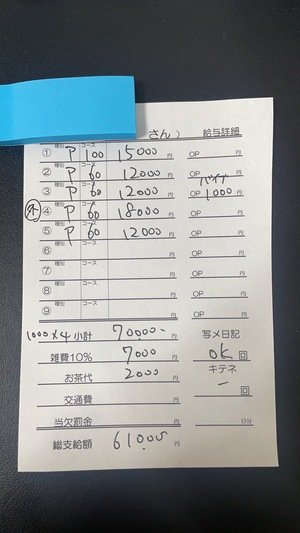 さん) 給与詳細
① 種別 P コース 100 15000 円 OP 円
② 種別 P コース 60 12000 円 OP 円
バイブ
③ 種別 P コース 60 12000 円 OP 1000 円
外 ④ 種別 P コース 60 18000 円 OP 円
⑤ 種別 P コース 60 12000 円 OP 円
⑥ 種別 コース 円 OP 円
⑦ 種別 コース 円 OP 円
⑧ 種別 コース 円 OP 円
⑨ 種別 コース 円 OP 円
1000×4 小計 70000- 円 写メ日記
雑費10% 7000 円 OK 回
お茶代 2000 円 キテネ
交通費 円 - 回
当欠罰金 円 日分
総支給額 61000 円